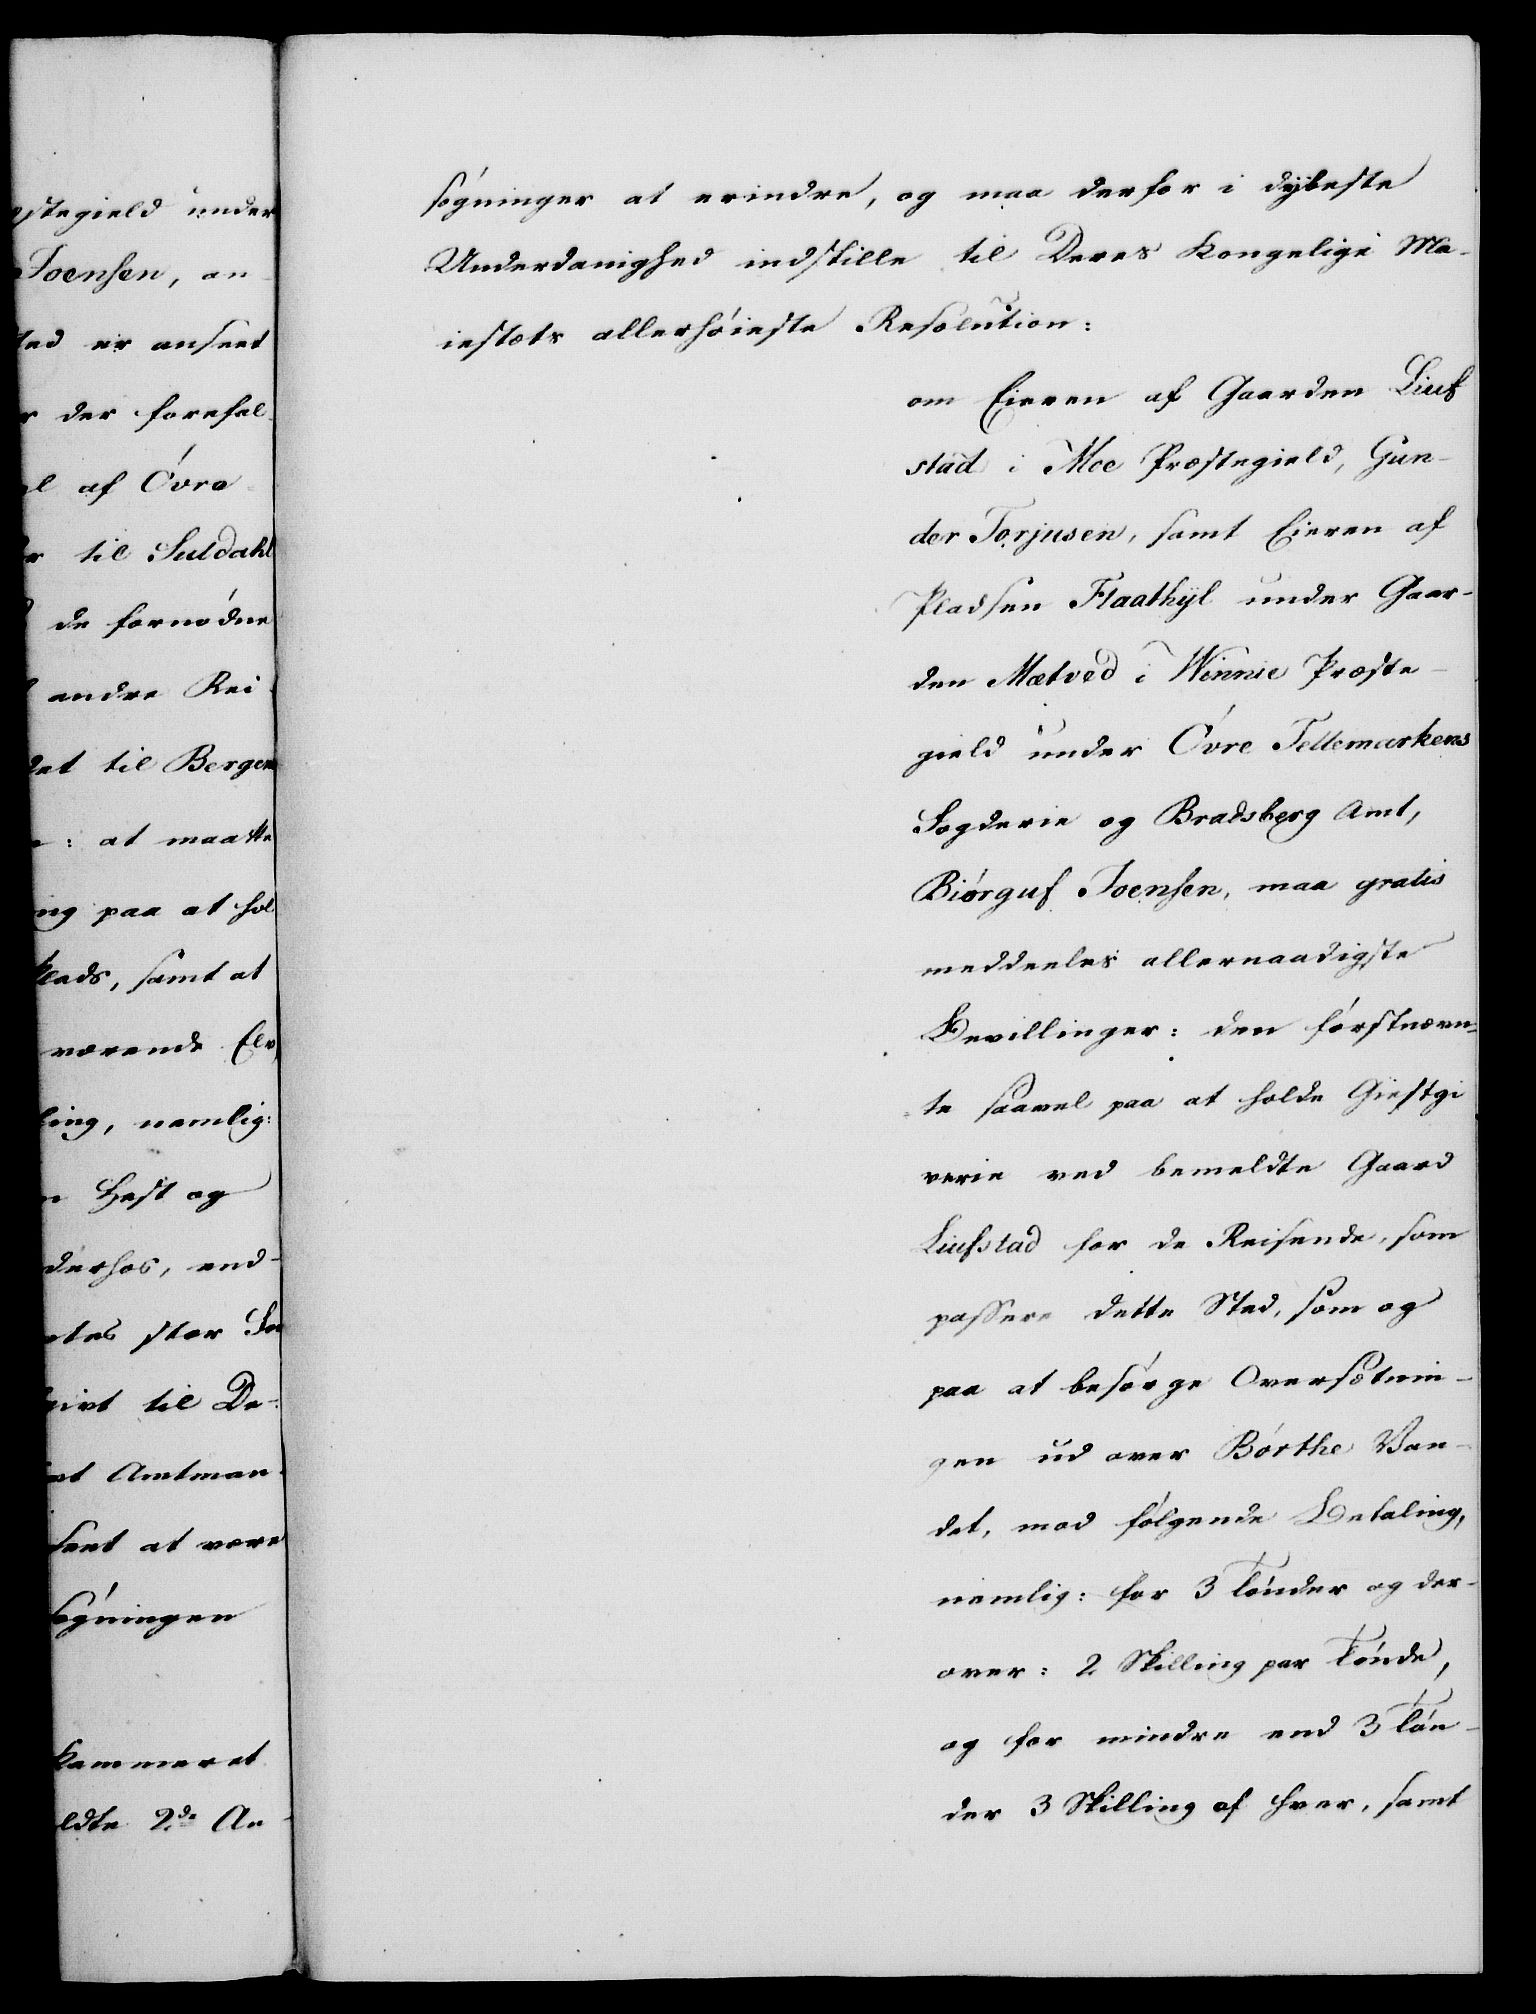 estegield under
Joensen, an-
sted er anseet
er der forefal-
el af Övre
er til Suldahl
de fornödne
andre Rei-
det til Bergen
e: at maatte
ing paa at hol
klads, samt at
værende Elv
ling, nemlig:
n Hest og
derhos, end-
ates stor
givt til De-
et Amtman-
seet at være
sögningen
Kammeret
ldte 2de An-
sögninger at erindre, og maa derfor i dÿbeste
Underdanighed indstille til Deres Kongelige Ma-
iestæts allerhöieste Resolution:
om Eieren af Gaarden Liuf
stad i Moe Præstegield, Gun-
der Torjusen, samt Eieren af
Pladsen Flaathÿl under Gaar-
den Mætved i Winnie Præste-
gield under Övre Tellemarkens
Fogderie og Bradsberg Amt,
Biörguf Joensen, maa gratis
meddeeles allernaadigste
Bevillinger: den förstnævn-
te saavel paa at holde Giestgi
verie ved bemeldte Gaard
Liufstad for de Reisende, som
passere dette Sted, som og
paa at besörge Oversætnin-
gen ud over Börthe Van-
det, mod fölgende Betaling,
nemlig: for 3 Tönder og der-
over: 2 Skilling per Tönde,
og for mindre end 3 Tön-
der 3 Skilling af hver, samt